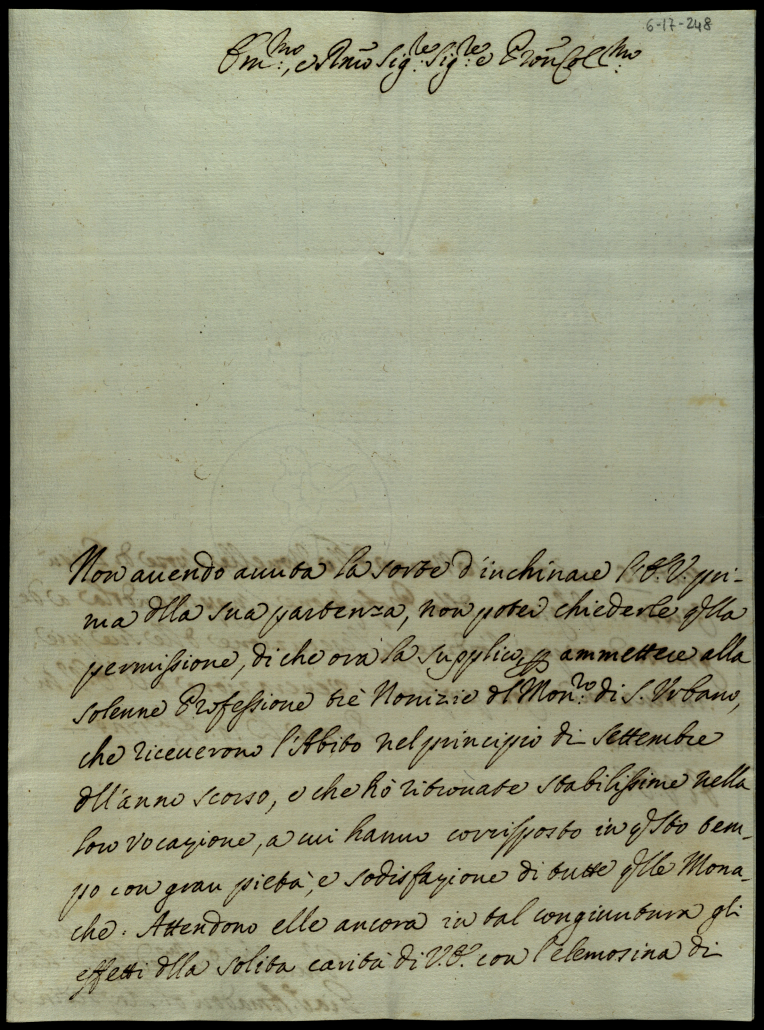 6-17-248
Em.mo, e Rmo Sig.re Sig.re e Pron Coll.mo
Non auendo auuta la sorte d'inchinare l'E.V. pri-
ma dlla sua partenza, non potei chiederle qlla
permissione, di che ora la supplico, p ammettere alla
solenne Professione trè Nouizie dl Mon.ro di S. Vrbano,
che riceuerono l'Abito nel principio di Settembre
dll'anno scorso, e che hò ritrouate stabilissime nella
loro vocazione, a cui hanno corrisposto in qsto tem-
po con gran pietà, e sodisfazione di tutte qlle Mona-
che. Attendono elle ancora in tal congiuntura gli
effetti dlla solita carità di V.E. con l'elemosina di